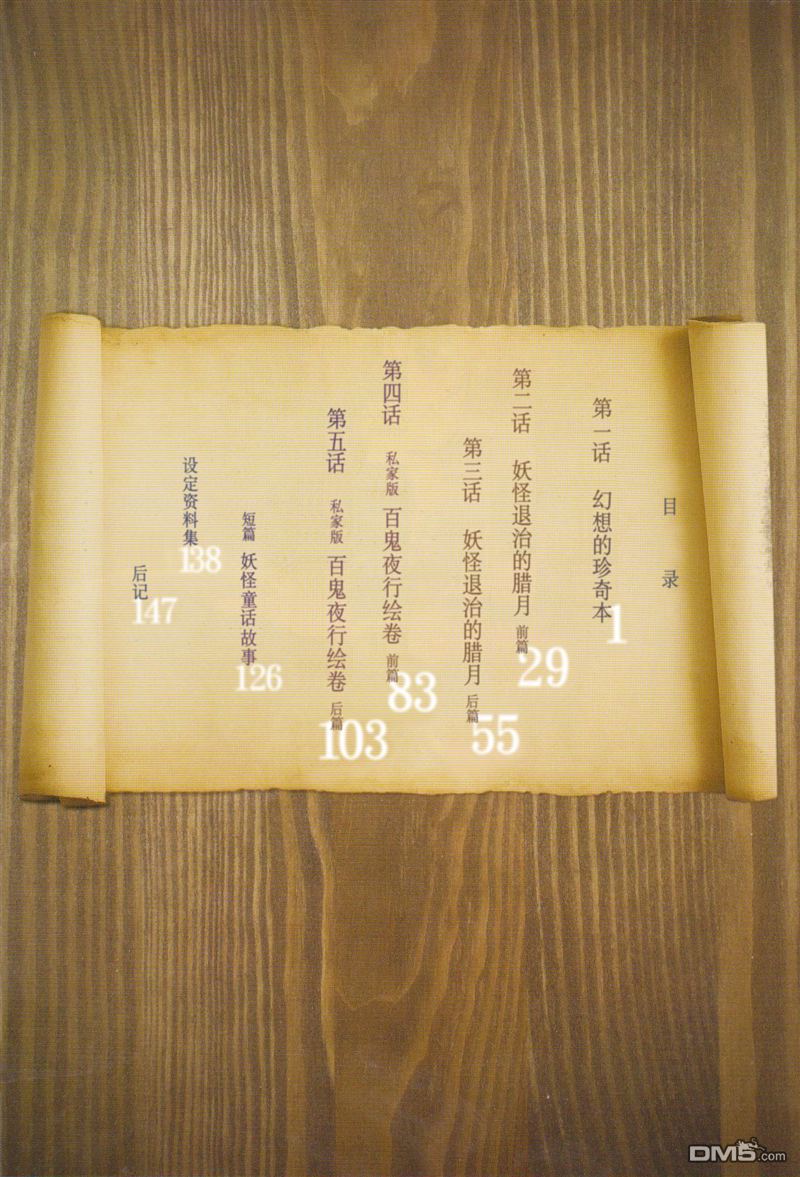 目录
第一话 幻想的珍奇本 1
第二话 妖怪退治的腊月 前篇 29
第三话 妖怪退治的腊月 后篇 55
第四话 私家版 百鬼夜行绘卷 前篇 83
第五话 私家版 百鬼夜行绘卷 后篇 103
短篇 妖怪童话故事 126
设定资料集 138
后记 147
DM5.com